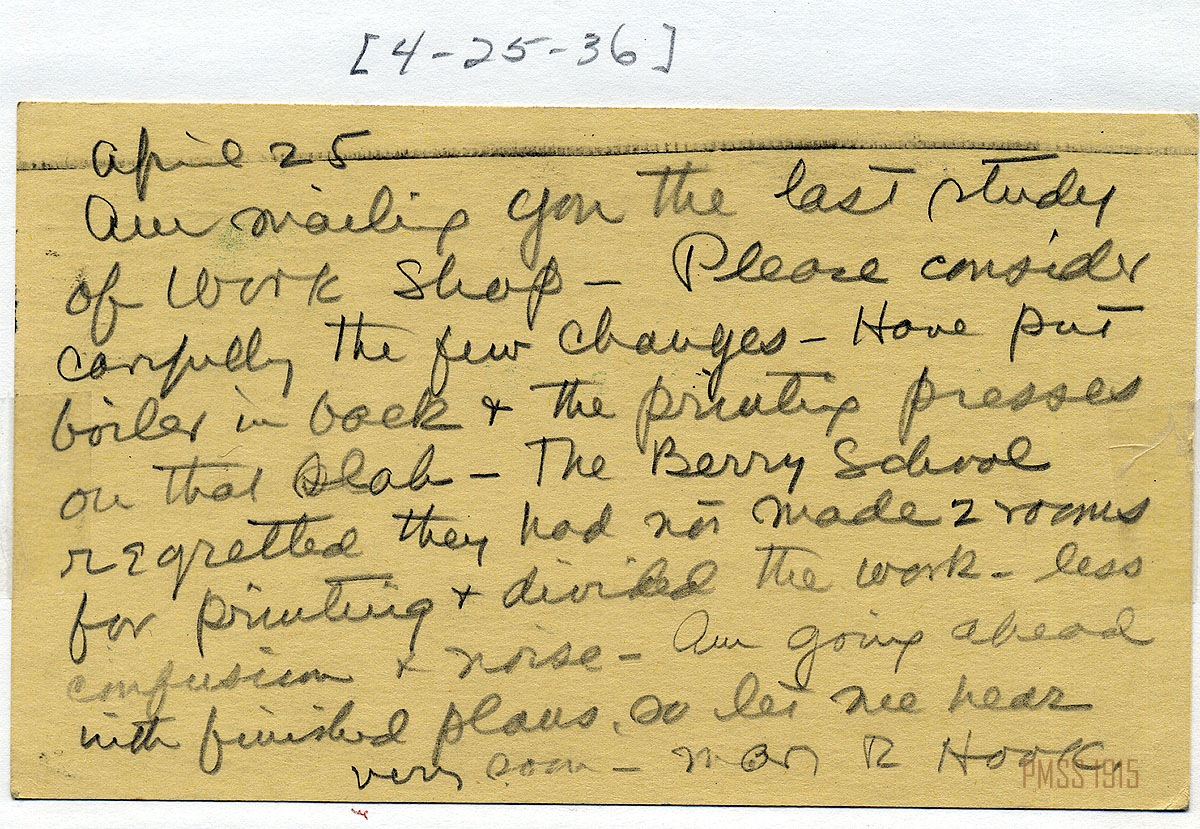 [4-25-36]
April 25
Am mailing you the last study
of Work Shop - Please consider
carefully the few changes - Have put
boiler in back + the printing presses
on that slab - The Berry School
regretted they had not made 2 rooms
for printing + divided the work - less
confusion + noise - Am going ahead
with finished plans, so let me hear
very soon - Mary R Hook
PMSS 1915